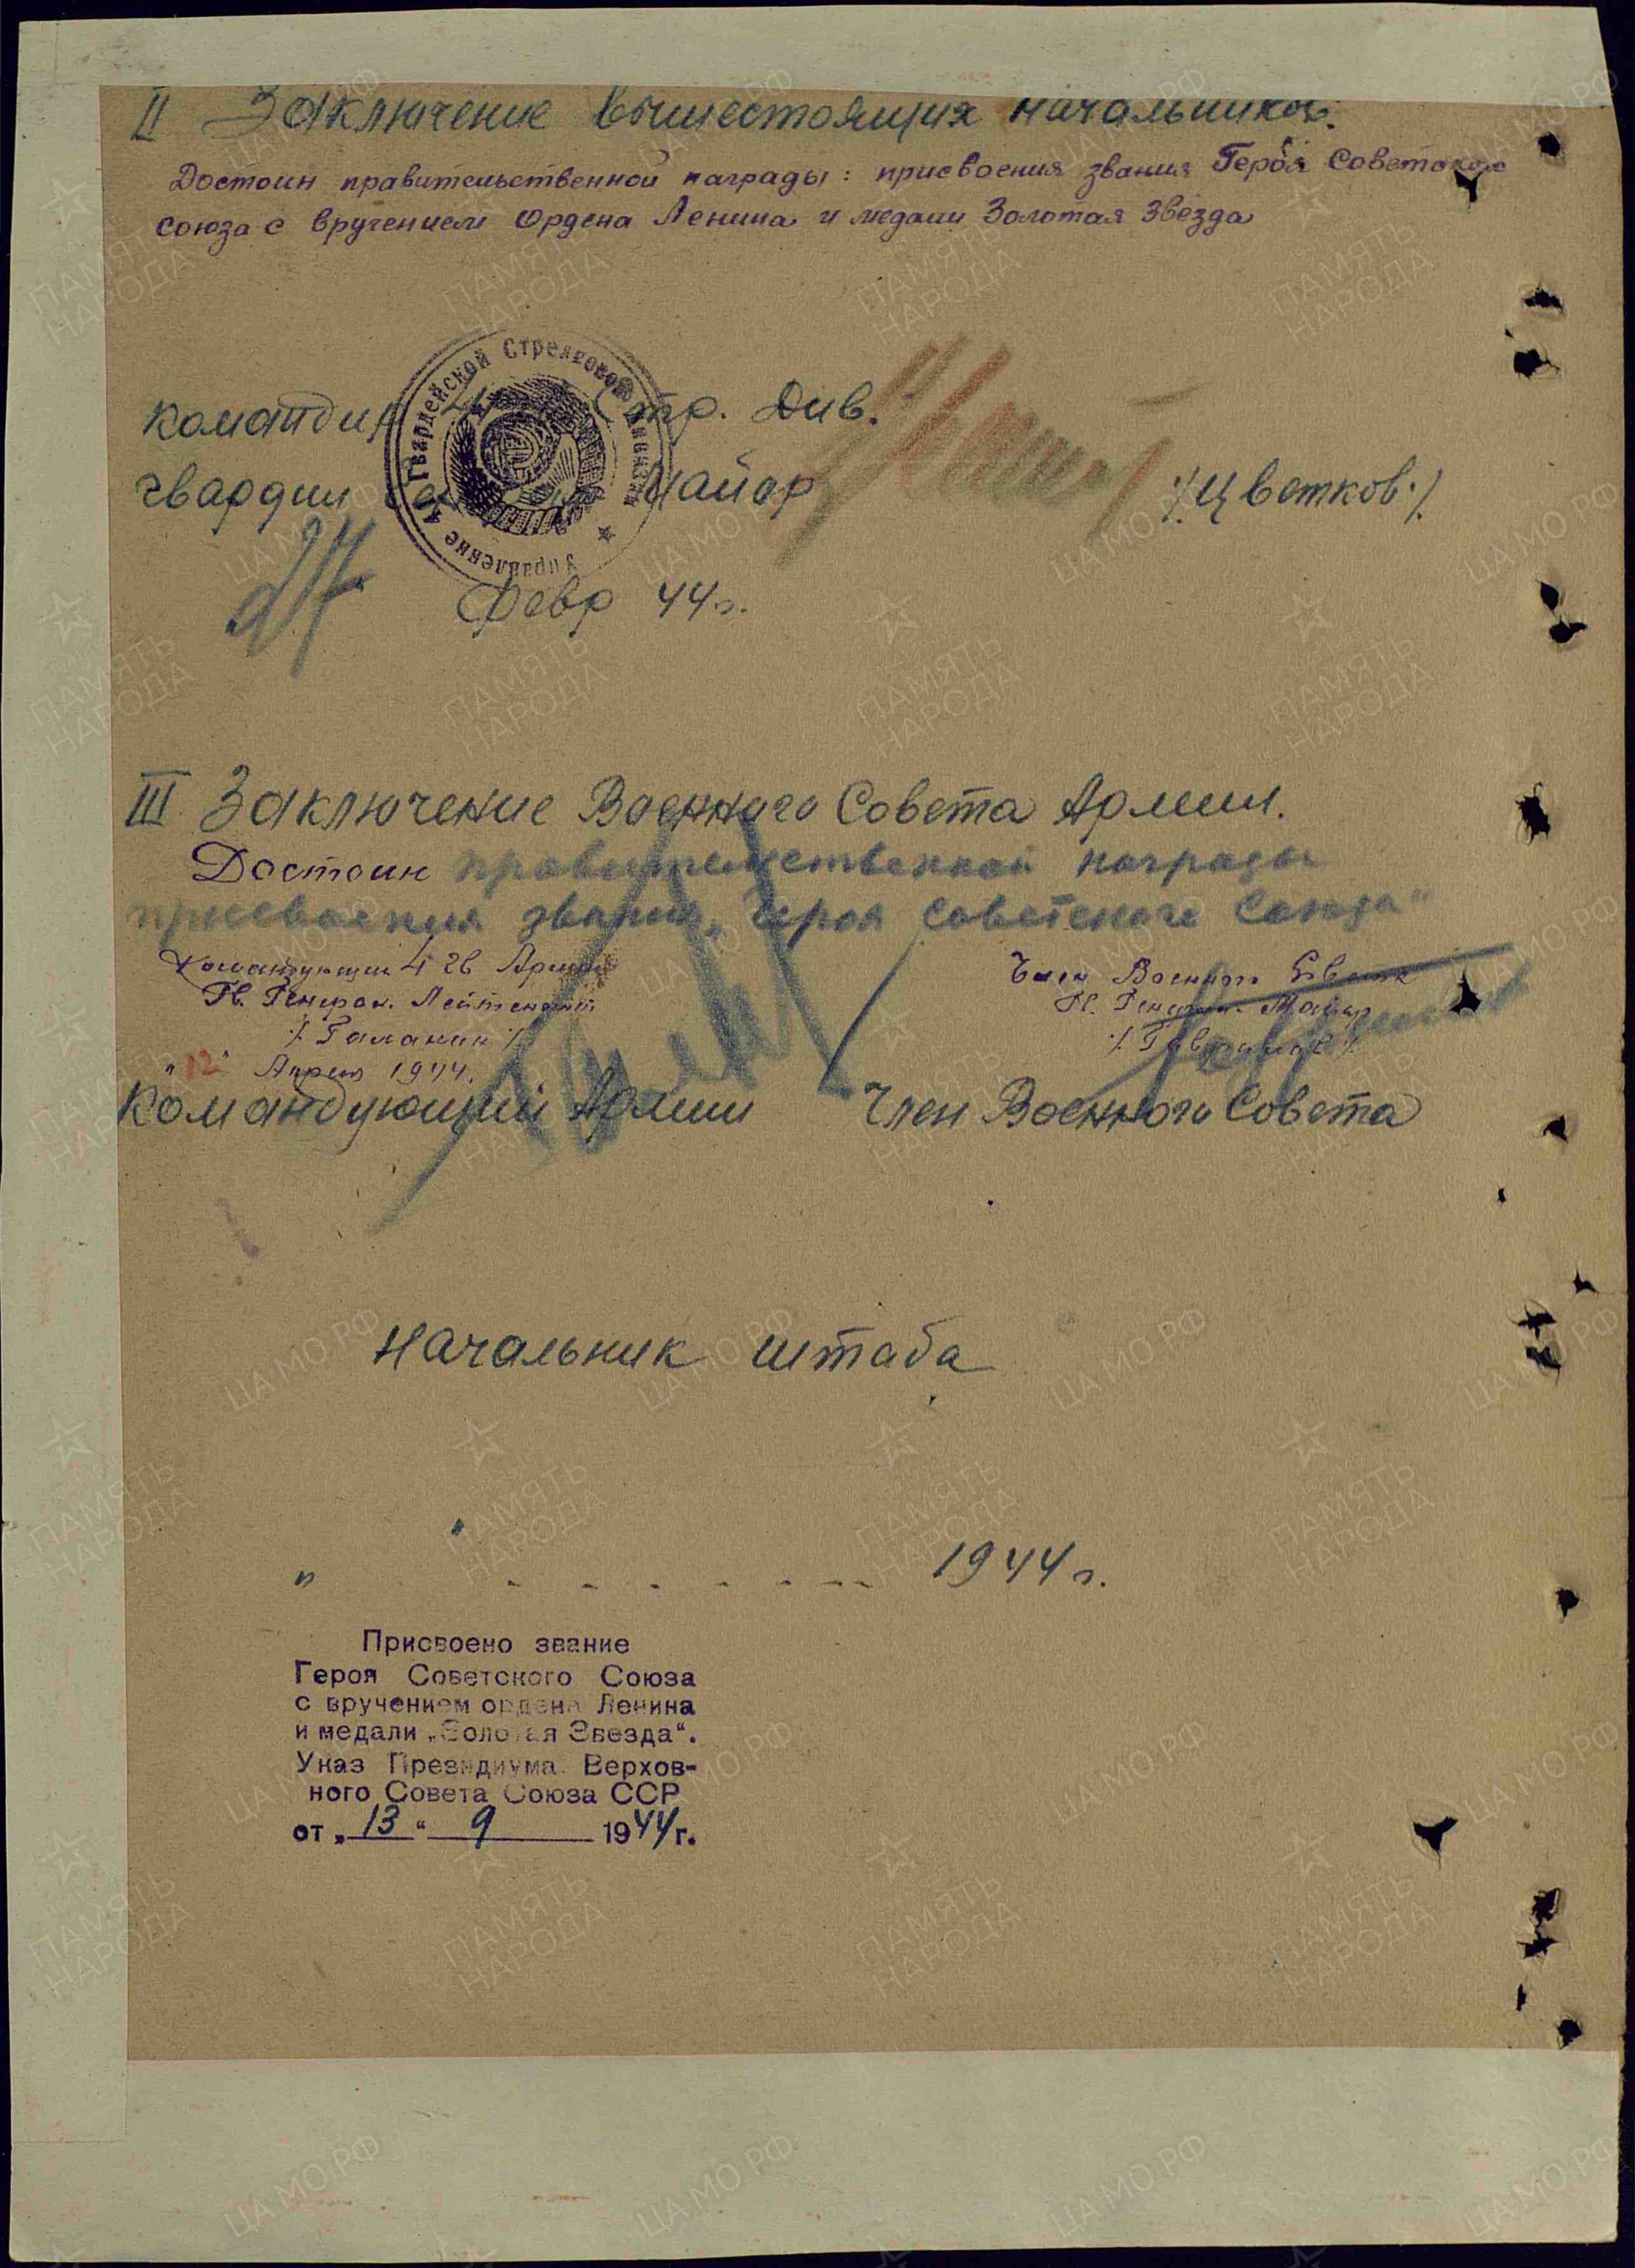 II Заключение вышестоящих начальников.
Достоин правительственной награды: присвоения звания Героя Советского
союза с вручением Ордена Ленина и медали Золотая Звезда
командир Стр. Див.
гвардии майор /Цветков/
Управление Гвардейской Стрелковой Дивизии
24 Февр 44г.
III Заключение Военного Совета Армии.
Достоин правительственной награды
присвоения звания „Героя Советского Союза"
Командующий 4 гв Армии
Гв. Генерал Лейтенант
/Галанин/
"12" Апреля 1944.
Член Военного Совета
Гв. Генерал Майор
Командующий Армии Член Военного Совета
Начальник штаба
" " 1944г.
Присвоено звание
Героя Советского Союза
с вручением ордена Ленина
и медали „Золотая Звезда“.
Указ Президиума Верхов-
ного Совета Союза ССР
от „13“ 9 1944г.
ПАМЯТЬ НАРОДА
ЦА МО РФ